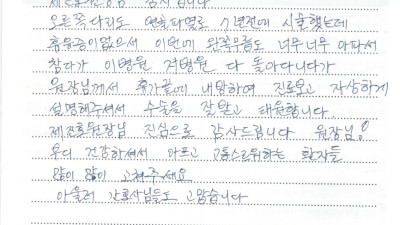 오른쪽다리도 연골파열로 7년전에 시술했는데
휴유증이없으서 이번에 왼쪽무릎도 너무너무 아파서
참다가 이병원 저병원 다 돌아다니다가
원장님께서 휴가끝에 내원하여 진료보고 자상하게
설명해주셔서 수술을 잘받고 퇴원합니다.
제진호원장님 진심으로 감사드립니다 원장님!
부디 건강하셔서 아프고 고통스러워하는 환자들
많이 많이 고쳐주세요
아울러 간호사님들도 고맙습니다